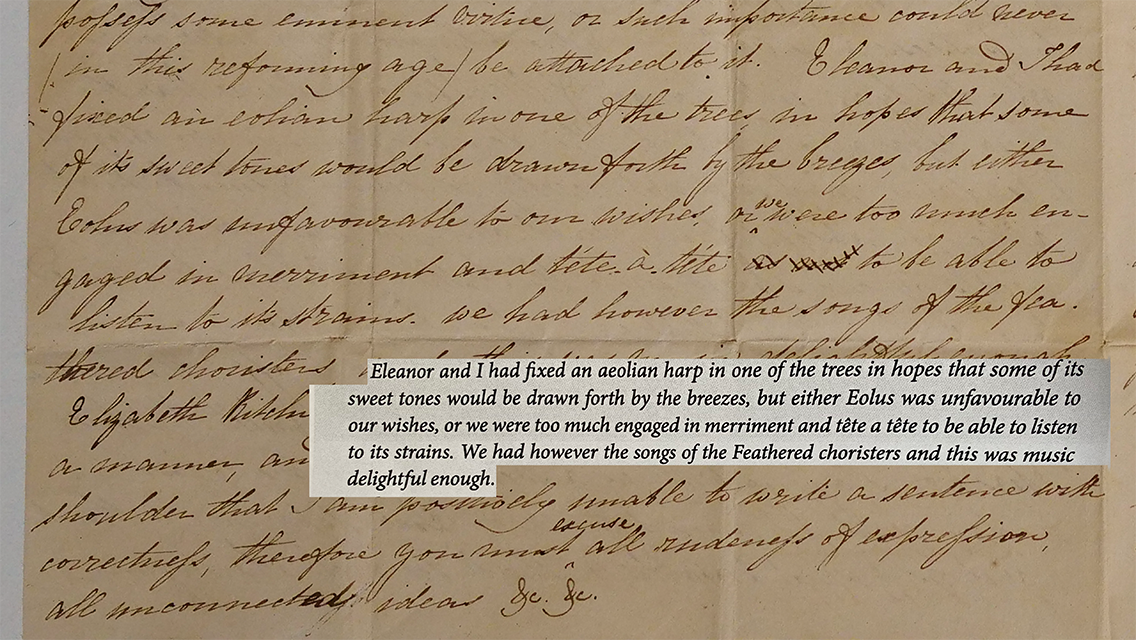 possess some eminent virtue, or such importance could never
(in this reforming age) be attached to it. Eleanor and I had
fixed an eolian harp in one of the trees in hopes that some
of it's sweet tones would be drawn forth by the breezes, but either
Eolus was unfavourable to our wishes, or we were too much en-
gaged in merriment and téte à téte to be able to
listen to it's strains. we had however the songs of the fea-
thered choristers
Elizabeth Kitch
a manner, an
shoulder that I am positively unable to write a sentence with
correctness, therefore you must excuse all rudeness of expression,
all unconnected ideas &c. &c.
Eleanor and I had fixed an aeolian harp in one of the trees in hopes that some of its
sweet tones would be drawn forth by the breezes, but either Eolus was unfavourable to
our wishes, or we were too much engaged in merriment and tête a tête to be able to listen
to its strains. We had however the songs of the Feathered choristers and this was music
delightful enough.